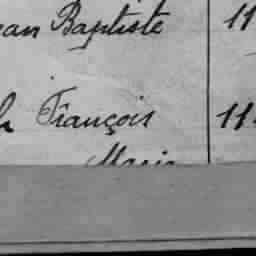 ean Baptiste 11
h François 11
Marie